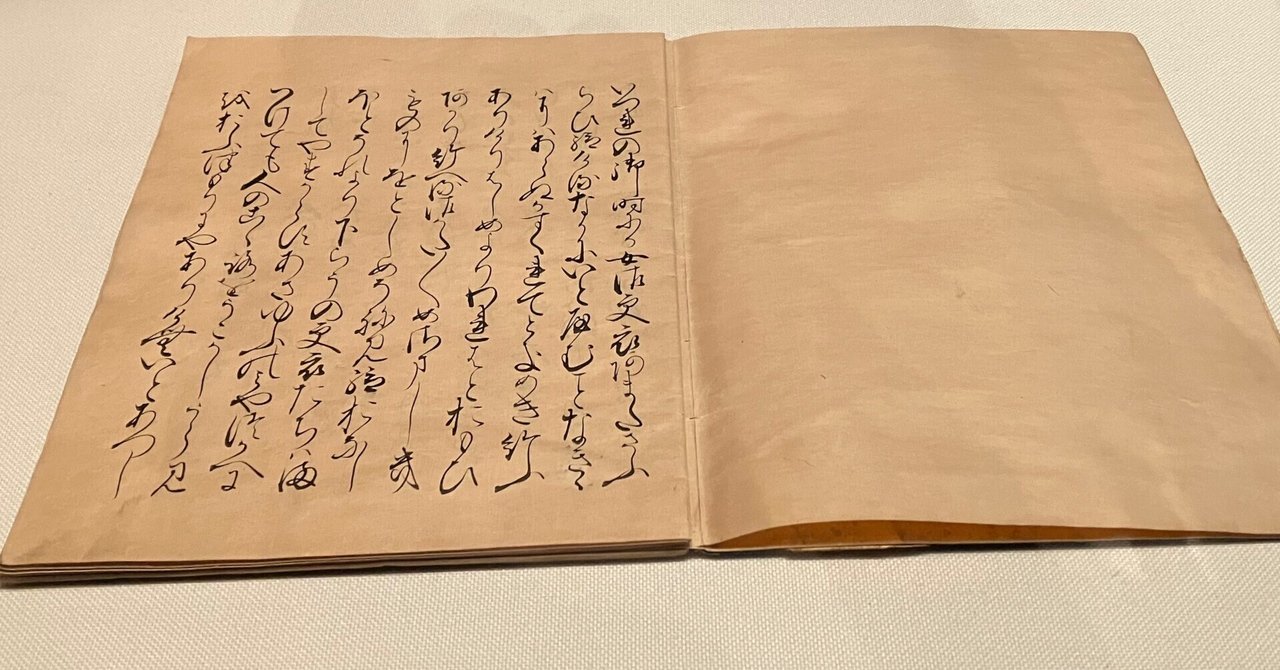 いつれの御時にか女御更衣あまたさふ
らひ給けるなかにいとやむことなきき
はにはあらぬかすくれてときめき給ふ
ありけりはしめよりわれはとおもひ
あかり給へる御かた〱めさましき
ものにをとしめそねみ給おなし
ほとそれより下らうの更衣たちはま
してやすからすあさゆふの宮つかへに
つけても人のこゝろをうこかしうらみ
をおふつもりにやありけむいとあつし